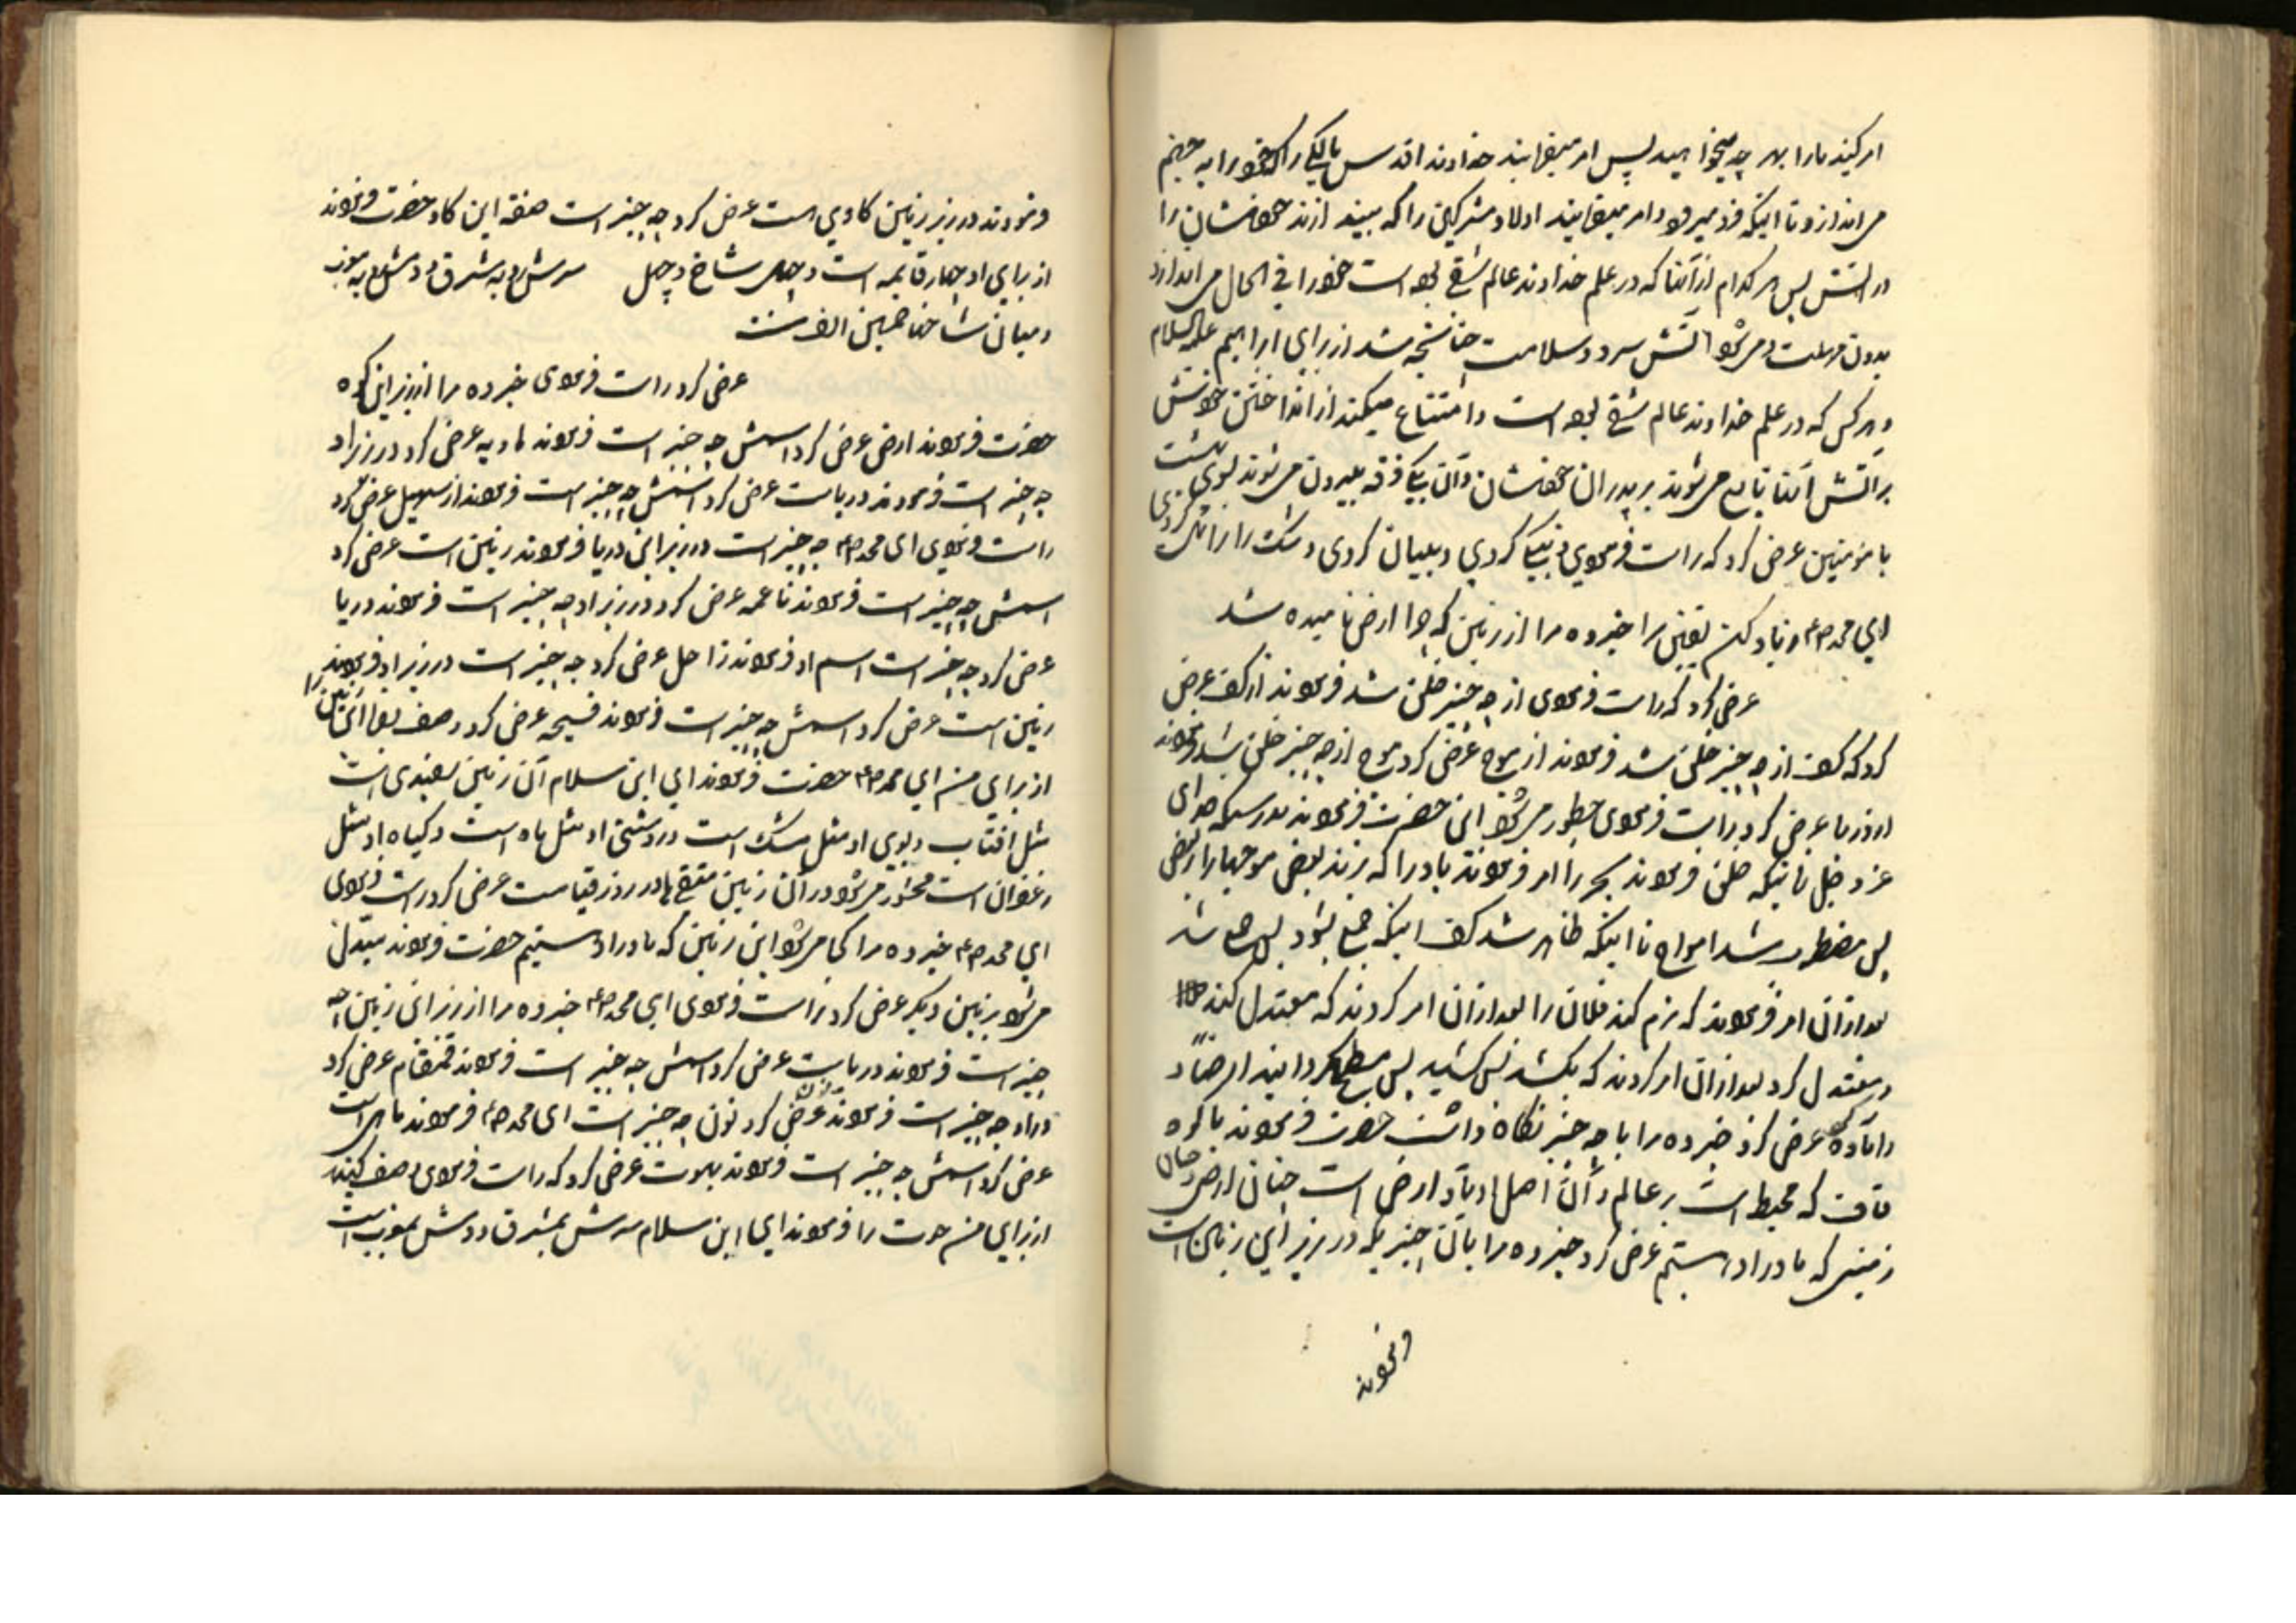 امر کنید ما را بهر چه میخواهید پس امر میفرمایند خداوند اقدس را که خود را به جهنم
می اندازد تا اینکه فرود میرود امر میفرمایند اولاد مشرکین را که بیند ازند خودشان را
در اتش پس هر کدام از آنها که در علم خداوند عالم شقی بوده است خود را فی الحال می اندازد
بدون مهلت و میشود آتش سرد و سلامت چنانچه شد از برای ابراهیم علیه السلام
و هر کس که در علم خداوند عالم شقی بوده است و امتناع میکند از انداختن خودش
بر آتش آنها تابع میشوند بر پدران خودشان و آن یک فرقه بیرون میروند بسوی بهشت
با مؤمنین عرض کرد که راست فرمودی و نیکی کردی و بیان کردی و شک را زائل کردی
ای محمد ص و زیاد کن یقین مرا خبر ده مرا از زمین که چرا ارض نامیده شد
عرض کرد که راست فرمودی از چه چیز خلق شد فرمودند از کف عرض
کرد که کف از چه چیز خلق شد فرمودند از موج عرض کرد موج از چه چیز خلق شد فرمودند
از دریا عرض کرد راست فرمودی چطور میشود این حضرت فرمودند بدرستیکه خدای
عز و جل زمانیکه خلق فرمودند بحر را امر فرمودند باد را که بزند بعضی موجها را بر بعضی
پس مضطرب شد امواج تا اینکه ظاهر شد کف اینکه جمع بشود پس جمع شد
بعد از آن امر فرمودند که نرم کند فلان را بعد از آن امر کردند که معتدل کند
و معتدل کرد بعد از آن امر کردند که بکشد پس کشید پس مسطح گردانید ارض
را آماده عرض کرد خبر ده مرا با چه چیز نگاه داشت حضرت فرمودند با کوه
قاف که محیط است بر عالم و آن اصل اوتاد ارض است چنان ارض
زمینی که ما در او هستیم عرض کرد خبر ده مرا بآن چیزیکه در زیر این زمین است
فرمودند
فرمودند در زیر زمین گاوی است عرض کرد چه چیز است صفة این گاو حضرت فرمودند
از برای او چهار قایمه است و چهل شاخ و چهل سرش به شرق و دمش به مغرب
و میان شاخها خمسین الف سنه
عرض کرد راست فرمودی خبر ده مرا از زیر این کوه
حضرت فرمودند ارض عرض کرد اسمش چه چیز است فرمودند هاویه عرض کرد در زیر او
چه چیز است فرمودند دریا است عرض کرد اسمش چه چیز است فرمودند از سهیل عرض کرد
راست فرمودی ای محمد ص چه چیز است در زیر این دریا فرمودند زمین است عرض کرد
اسمش چه چیز است فرمودند ناعمه عرض کرد در زیر او چه چیز است فرمودند دریا
عرض کرد چه چیز است اسم او فرمودند زاخل عرض کرد چه چیز است در زیر او فرمودند
زمین است عرض کرد اسمش چه چیز است فرمودند فسیحه عرض کرد وصف بفرما این زمین را
از برای من ای محمد ص حضرت فرمودند ای ابن سلام آن زمین سفیدی است
مثل افتاب و بوی او مثل مشک است و روشنی او مثل ماه است و گیاه او مثل
زعفران است محشور میشود در آن زمین متقی ها در روز قیامت عرض کرد راست فرمودی
ای محمد ص خبر ده مرا کجا میشود این زمین که ما در او هستیم حضرت فرمودند مبتدل
میشود بزمین دیگر عرض کرد راست فرمودی ای محمد ص خبر ده مرا از زیر این زمین چه
چیز است فرمودند دریا است عرض کرد اسمش چه چیز است فرمودند قمقام عرض کرد
در او چه چیز است فرمودند نون عرض کرد نون چه چیز است ای محمد ص فرمودند ماهی است
عرض کرد اسمش چه چیز است فرمودند بهموت عرض کرد که راست فرمودی وصف کنید
از برای من حوت را فرمودند ای ابن سلام سرش بمشرق و دمش بمغرب است